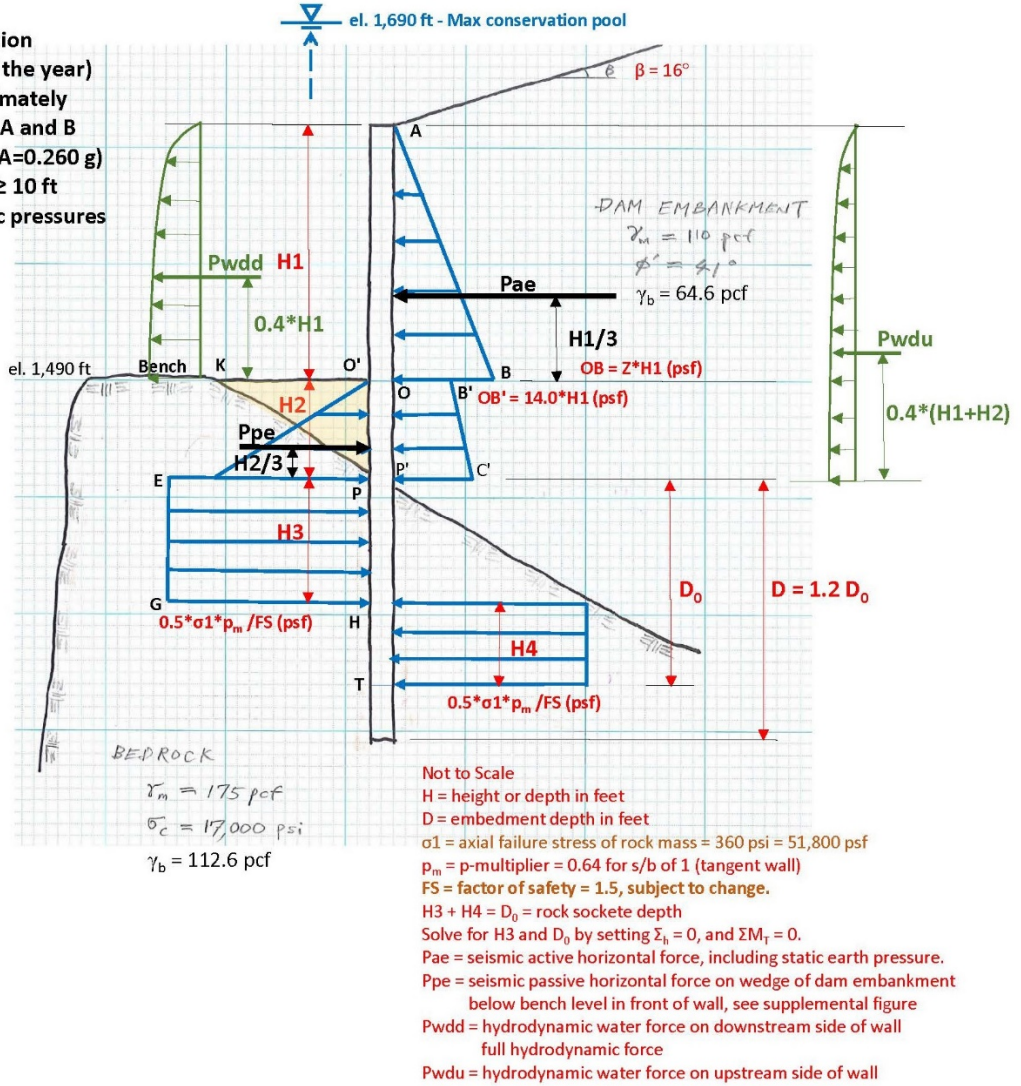 el. 1,690 ft - Max conservation pool
ion
the year)
mately
A and B
A=0.260 g)
≥ 10 ft
c pressures
β
β = 16°
A
DAM EMBANKMENT
γm = 110 pcf
φ' = 41°
γb = 64.6 pcf
H1
Pwdd
0.4*H1
Pae
H1/3
Pwdu
0.4*(H1+H2)
el. 1,490 ft
Bench
K
O'
O
B
OB = Z*H1 (psf)
B'
OB' = 14.0*H1 (psf)
H2
Ppe
H2/3
E
P
P'
C'
H3
G
H
0.5*σ1*pm /FS (psf)
H4
T
0.5*σ1*pm /FS (psf)
D0
D = 1.2 D0
BEDROCK
γm = 175 pcf
σc = 17,000 psi
γb = 112.6 pcf
Not to Scale
H = height or depth in feet
D = embedment depth in feet
σ1 = axial failure stress of rock mass = 360 psi = 51,800 psf
pm = p-multiplier = 0.64 for s/b of 1 (tangent wall)
FS = factor of safety = 1.5, subject to change.
H3 + H4 = D0 = rock sockete depth
Solve for H3 and D0 by setting Σh = 0, and ΣMT = 0.
Pae = seismic active horizontal force, including static earth pressure.
Ppe = seismic passive horizontal force on wedge of dam embankment
below bench level in front of wall, see supplemental figure
Pwdd = hydrodynamic water force on downstream side of wall
full hydrodynamic force
Pwdu = hydrodynamic water force on upstream side of wall